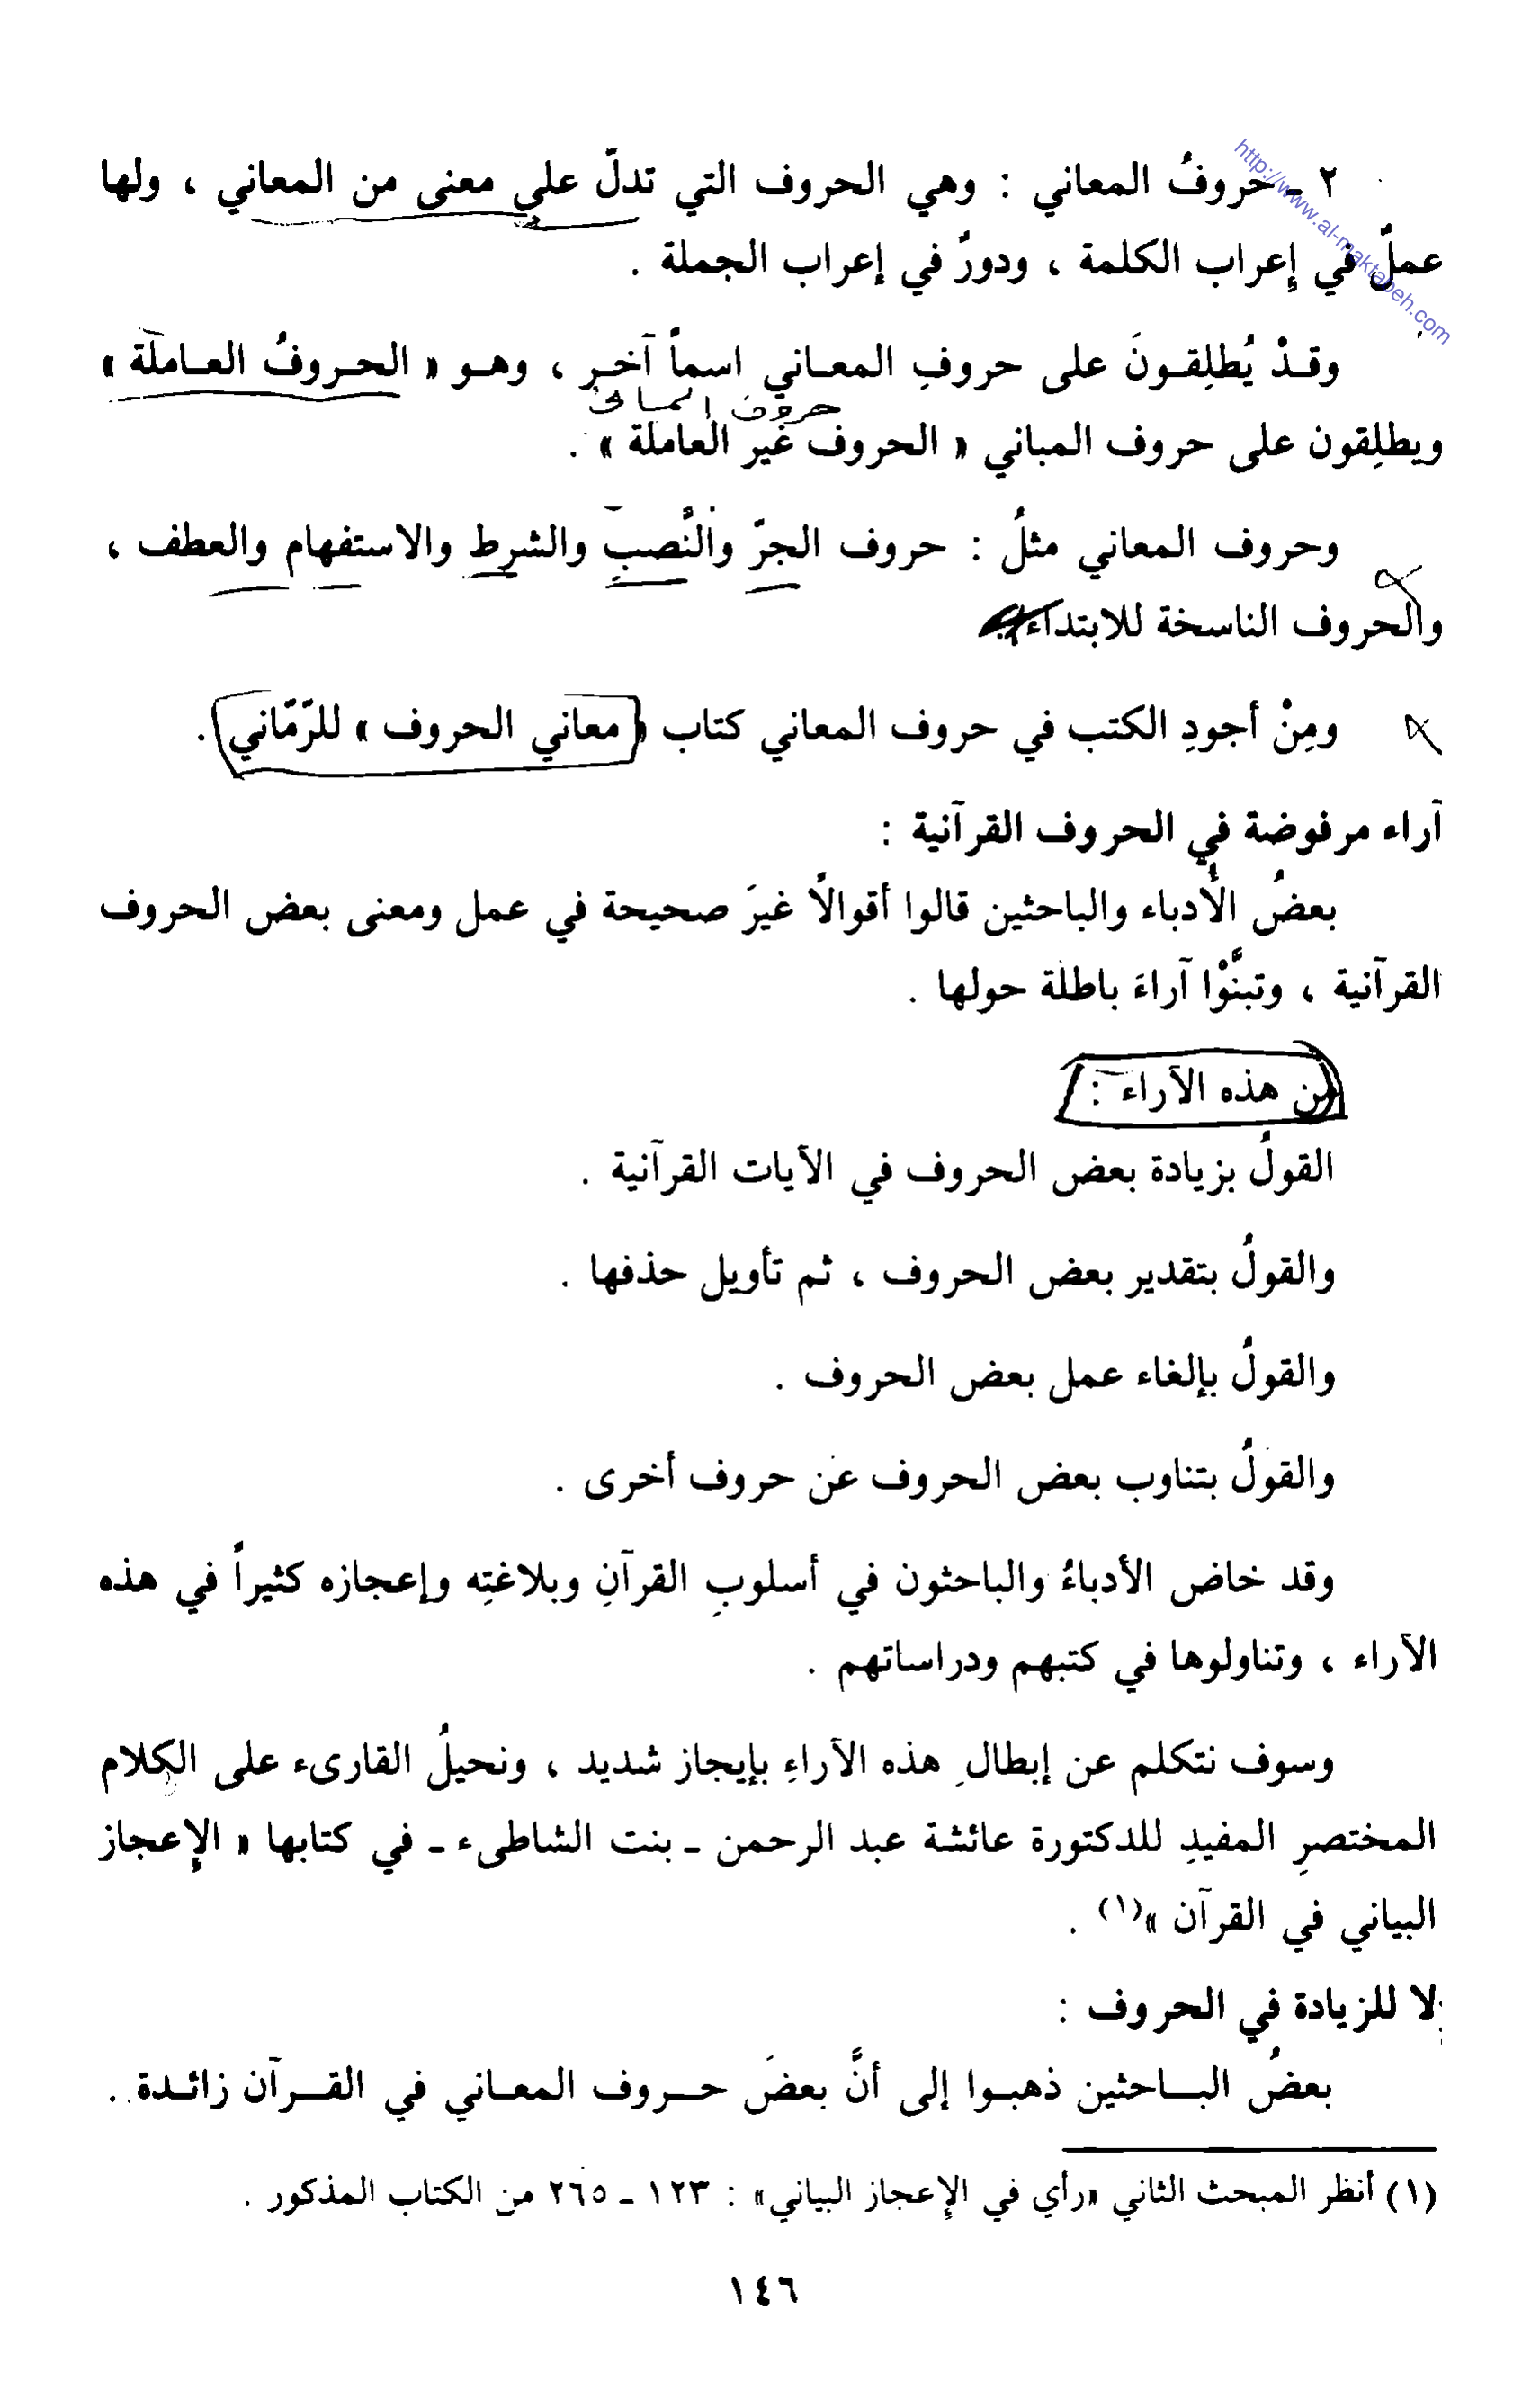 http://www.al-maktabeh.com
٢ ـ حروفُ المعاني : وهي الحروف التي تدلّ علي معنى من المعاني ، ولها
عملٌ في إِعراب الكلمة ، ودورٌ في إعراب الجملة .
وقـدْ يُطلِقـونَ على حروفِ المعـاني اسماً آخـر ، وهـو « الحـروفُ العـاملة »
حروف المباني
ويطلِقون على حروف المباني « الحروف غير العاملة » .
وحروف المعاني مثلُ : حروف الجرّ والنَّصبِ والشرط والاستفهام والعطف ،
والحروف الناسخة للابتداء
ومِنْ أجودِ الكتب في حروف المعاني كتاب « معاني الحروف » للرّمّاني .
آراء مرفوضة في الحروف القرآنية :
بعضُ الأُدباء والباحثين قالوا أقوالًا غيرَ صحيحة في عمل ومعنى بعض الحروف
القرآنية ، وتبنَّوْا آراءَ باطلة حولها .
من هذه الآراء :
القولُ بزيادة بعض الحروف في الآيات القرآنية .
والقولُ بتقدير بعض الحروف ، ثم تأويل حذفها .
والقولُ بإلغاء عمل بعض الحروف .
والقولُ بتناوب بعض الحروف عن حروف أخرى .
وقد خاض الأدباءُ والباحثون في أسلوبِ القرآنِ وبلاغتِه وإعجازه كثيراً في هذه
الآراء ، وتناولوها في كتبهم ودراساتهم .
وسوف نتكلم عن إبطالِ هذه الآراءِ بإيجاز شديد ، ونحيلُ القارىء على الكلام
المختصرِ المفيدِ للدكتورة عائشة عبد الرحمن ـ بنت الشاطىء ـ في كتابها « الإعجاز
البياني في القرآن »(١) .
لا للزيادة في الحروف :
بعضُ البـــاحثين ذهبـوا إلى أنَّ بعضَ حـــروف المعـاني في القـــرآن زائـدة .
(١) أنظر المبحث الثاني «رأي في الإعجاز البياني» : ١٢٣ ـ ٢٦٥ من الكتاب المذكور .
١٤٦